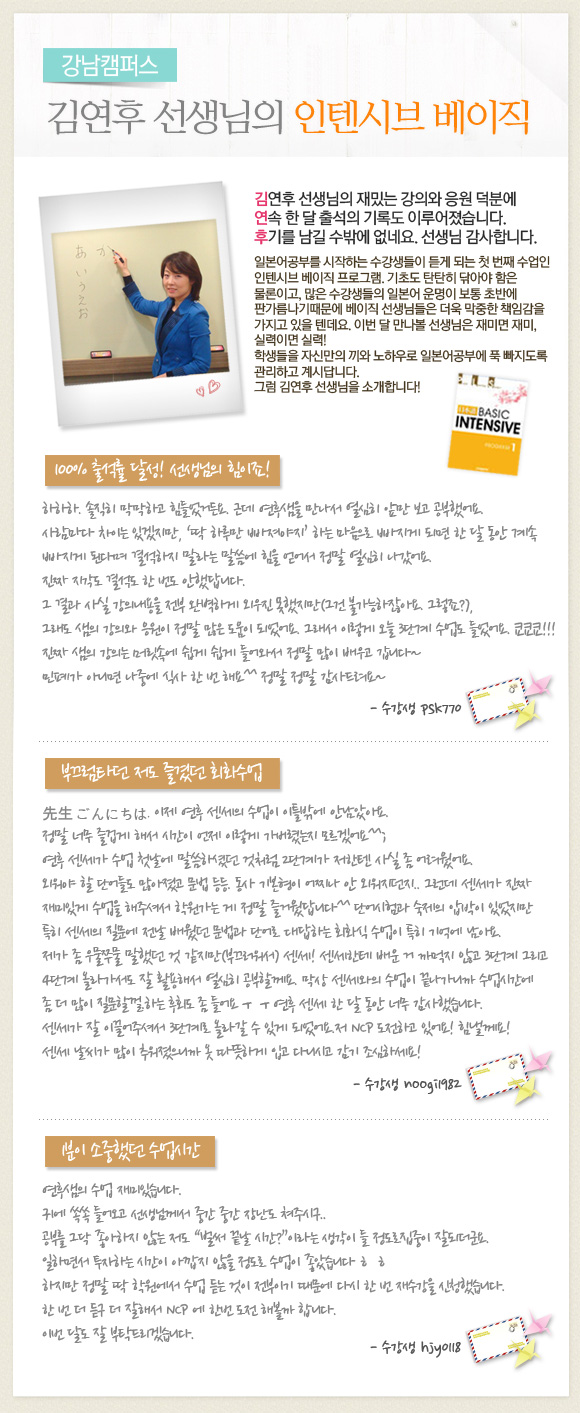 강남캠퍼스
김연후 선생님의 인텐시브 베이직
か
あいうえお
김연후 선생님의 재밌는 강의와 응원 덕분에
연속 한 달 출석의 기록도 이루어졌습니다.
후기를 남길 수밖에 없네요. 선생님 감사합니다.
일본어공부를 시작하는 수강생들이 듣게 되는 첫 번째 수업인
인텐시브 베이직 프로그램. 기초도 탄탄히 닦아야 함은
물론이고, 많은 수강생들의 일본어 운명이 보통 초반에
판가름나기때문에 베이직 선생님들은 더욱 막중한 책임감을
가지고 있을 텐데요. 이번 달 만나볼 선생님은 재미면 재미,
실력이면 실력!
학생들을 자신만의 끼와 노하우로 일본어공부에 푹 빠지도록
관리하고 계시답니다.
그럼 김연후 선생님을 소개합니다!
BASIC
INTENSIVE
1
100% 출석률 달성! 선생님의 힘이죠!
하하하. 솔직히 막막하고 힘들었거든요. 근데 연후샘을 만나서 열심히 앞만 보고 공부했어요.
사람마다 차이는 있겠지만, ‘딱 하루만 빠져야지’ 하는 마음으로 빠지게 되면 한 달 동안 계속
빠지게 된다며 결석하지 말라는 말씀에 힘을 얻어서 정말 열심히 나갔어요.
진짜 지각도 결석도 한 번도 안했답니다.
그 결과 사실 강의내용을 전부 완벽하게 외우진 못했지만(그건 불가능하잖아요. 그렇죠?),
그래도 샘의 강의와 응원이 정말 많은 도움이 되었어요. 그래서 이렇게 오늘 3단계 수업도 들었어요. 쿄쿄쿄!!!
진짜 샘의 강의는 머릿속에 쉽게 쉽게 들어와서 정말 많이 배우고 갑니다~
민폐가 아니면 나중에 식사 한 번 해요^^ 정말 정말 감사드려요~
- 수강생 psk770
부끄럼타던 저도 즐겼던 회화수업
先生 ごんにちは. 이제 연후 센세의 수업이 이틀밖에 안남았아요.
정말 너무 즐겁게 해서 시간이 언제 이렇게 가버렸는지 모르겠어요^^;
연후 센세가 수업 첫날에 말씀하셨던 것처럼 2단계가 저한텐 사실 좀 어려웠어요.
외워야 할 단어들도 많아졌고 문법 등등. 동사 기본형이 어찌나 안 외워지던지.. 그런데 센세가 진짜
재미있게 수업을 해주셔서 학원가는 게 정말 즐거웠답니다^^ 단어시험과 숙제의 압박이 있었지만
특히 센세의 질문에 전날 배웠던 문법과 단어로 대답하는 회화식 수업이 특히 기억에 남아요.
제가 좀 우물쭈물 말했던 것 같지만(부끄러워서) 센세! 센세한테 배운 거 까먹지 않고 3단계 그리고
4단계 올라가서도 잘 활용해서 열심히 공부할께요. 막상 센세와의 수업이 끝나가니까 수업시간에
좀 더 많이 질문할껄.하는 후회도 좀 들어요 ㅜ ㅜ 연후 센세 한 달 동안 너무 감사했습니다.
센세가 잘 이끌어주셔서 3단계로 올라갈 수 있게 되었어요.저 NCP 도전하고 있어요! 힘낼께요!
센세 날씨가 많이 추워졌으니까 옷 따뜻하게 입고 다니시고 감기 조심하세요!
- 수강생 noogi1982
1분이 소중했던 수업시간
연후샘의 수업 재미있습니다.
귀에 쏙쏙 들어오고 선생님께서 중간 중간 장난도 쳐주시구..
공부를 그닥 좋아하지 않는 저도 “벌써 끝날 시간?”이라는 생각이 들 정도로집중이 잘되더군요.
일하면서 투자하는 시간이 아깝지 않을 정도로 수업이 좋았습니다 ㅎ ㅎ
하지만 정말 딱 학원에서 수업 듣는 것이 전부이기 때문에 다시 한 번 재수강을 신청했습니다.
한 번 더 듣구 더 잘해서 NCP 에 한번 도전 해볼까 합니다.
이번 달도 잘 부탁드리겠습니다.
- 수강생 hjy0118